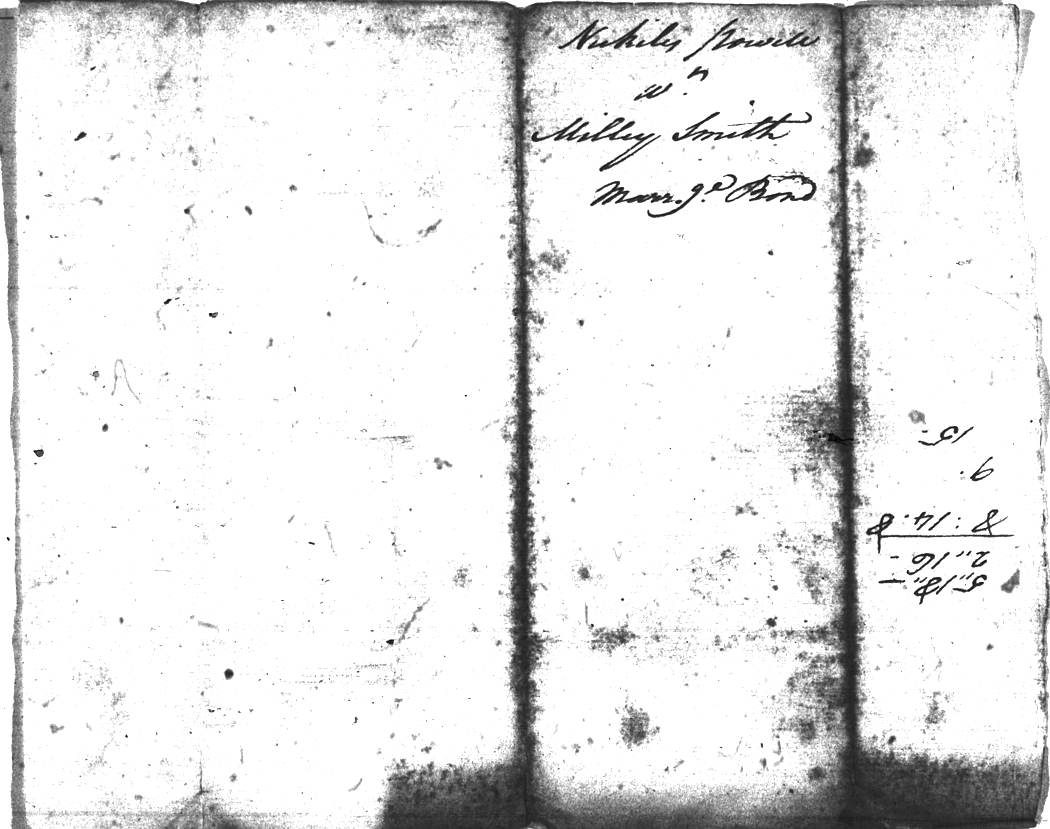 Powell
w.n
Milley Smith
Marr.ge Bond
5,,18,, -
2,,16 -
8 : 14. 8
9.
15 -